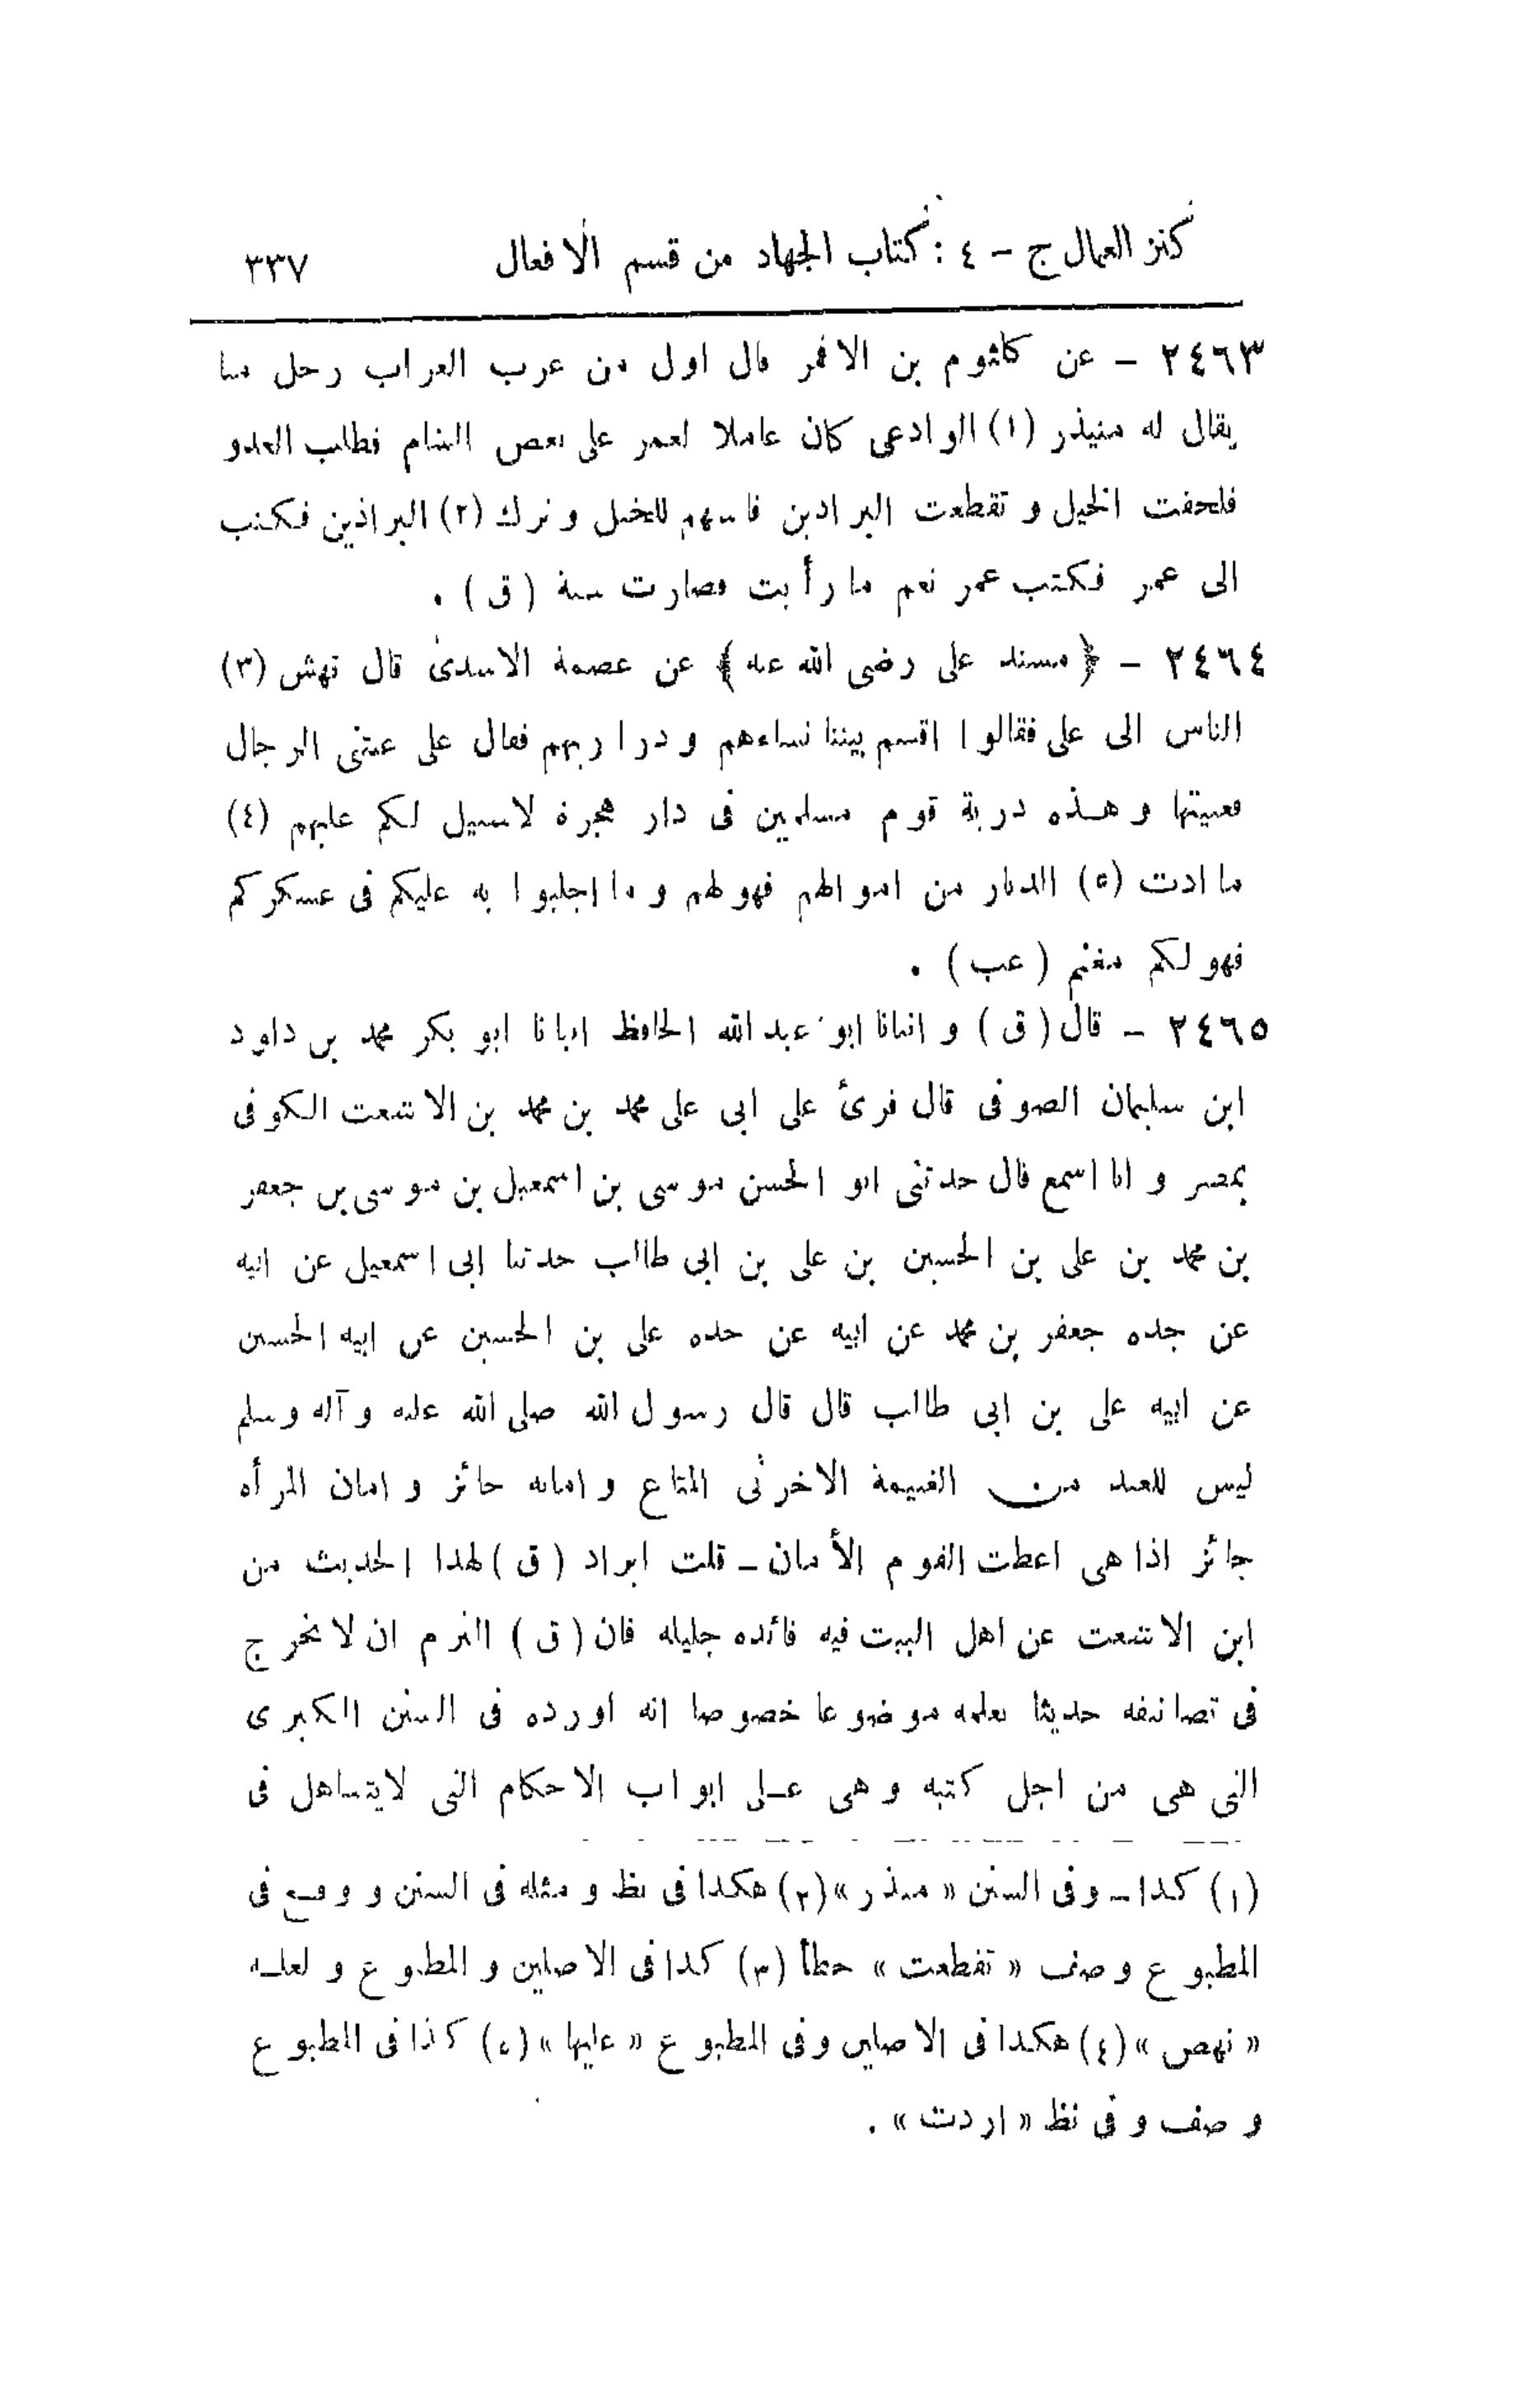 كنز العمال ج – ٤ : كتاب الجهاد من قسم الافعال ٣٣٧
٢٤٦٣ – عن كلثوم بن الاقمر قال اول من عرب العراب رجل منا
يقال له منيذر (١) الوادعى كان عاملا لعمر على بعض الشام فطلب العدو
فلحقت الخيل و تقطعت البراذين فاسهم للخيل و ترك (٢) البراذين فكتب
الى عمر فكتب عمر نعم ما رأيت فصارت سنة (ق) .
٢٤٦٤ – ﴿مسند على رضى الله عنه﴾ عن عصمة الاسدى قال تهش (٣)
الناس الى على فقالوا اقسم بيننا نساءهم و ذراريهم فقال على عنتنى الرجال
فعنيتها و هذه ذرية قوم مسلمين فى دار هجرة لاسبيل لكم عليهم (٤)
ما ادت (٥) الديار من اموالهم فهولهم و ما اجلبوا به عليكم فى عسكركم
فهو لكم مغنم (عب) .
٢٤٦٥ – قال (ق) و انبانا ابو عبد الله الحافظ انبانا ابو بكر محمد بن داود
ابن سليمان الصوفى قال قرئ على ابى على محمد بن محمد بن الاشعت الكوفى
بمصر و انا اسمع قال حدثنى ابو الحسن موسى بن اسمعيل بن موسى بن جعفر
بن محمد بن على بن الحسين بن على بن ابى طالب حدثنا ابى اسمعيل عن ابيه
عن جده جعفر بن محمد عن ابيه عن جده على بن الحسين عن ابيه الحسين
عن ابيه على بن ابى طالب قال قال رسول الله صلى الله عليه وآله وسلم
ليس للعبد من الغنيمة الاخرثى المتاع و امانه جائز و امان المرأه
جائز اذا هى اعطت القوم الأمان – قلت ايراد (ق) لهذا الحديث من
ابن الاشعت عن اهل البيت فيه فائده جليله فان (ق) التزم ان لا يخرج
فى تصانيفه حديثا يعلمه موضوعا خصوصا انه اورده فى السنن الكبرى
التى هى من اجل كتبه و هى على ابواب الاحكام التى لايتساهل فى
(١) كذا – وفى السنن « منذر » (٢) هكذا فى نظ و مثله فى السنن و وقع فى
المطبوع و صف « تقطعت » خطأ (٣) كذا فى الاصلين و المطبوع و لعله
« نهض » (٤) هكذا فى الاصلين وفى المطبوع « عليها » (٥) كذا فى المطبوع
و صف و فى نظ « اردت » .